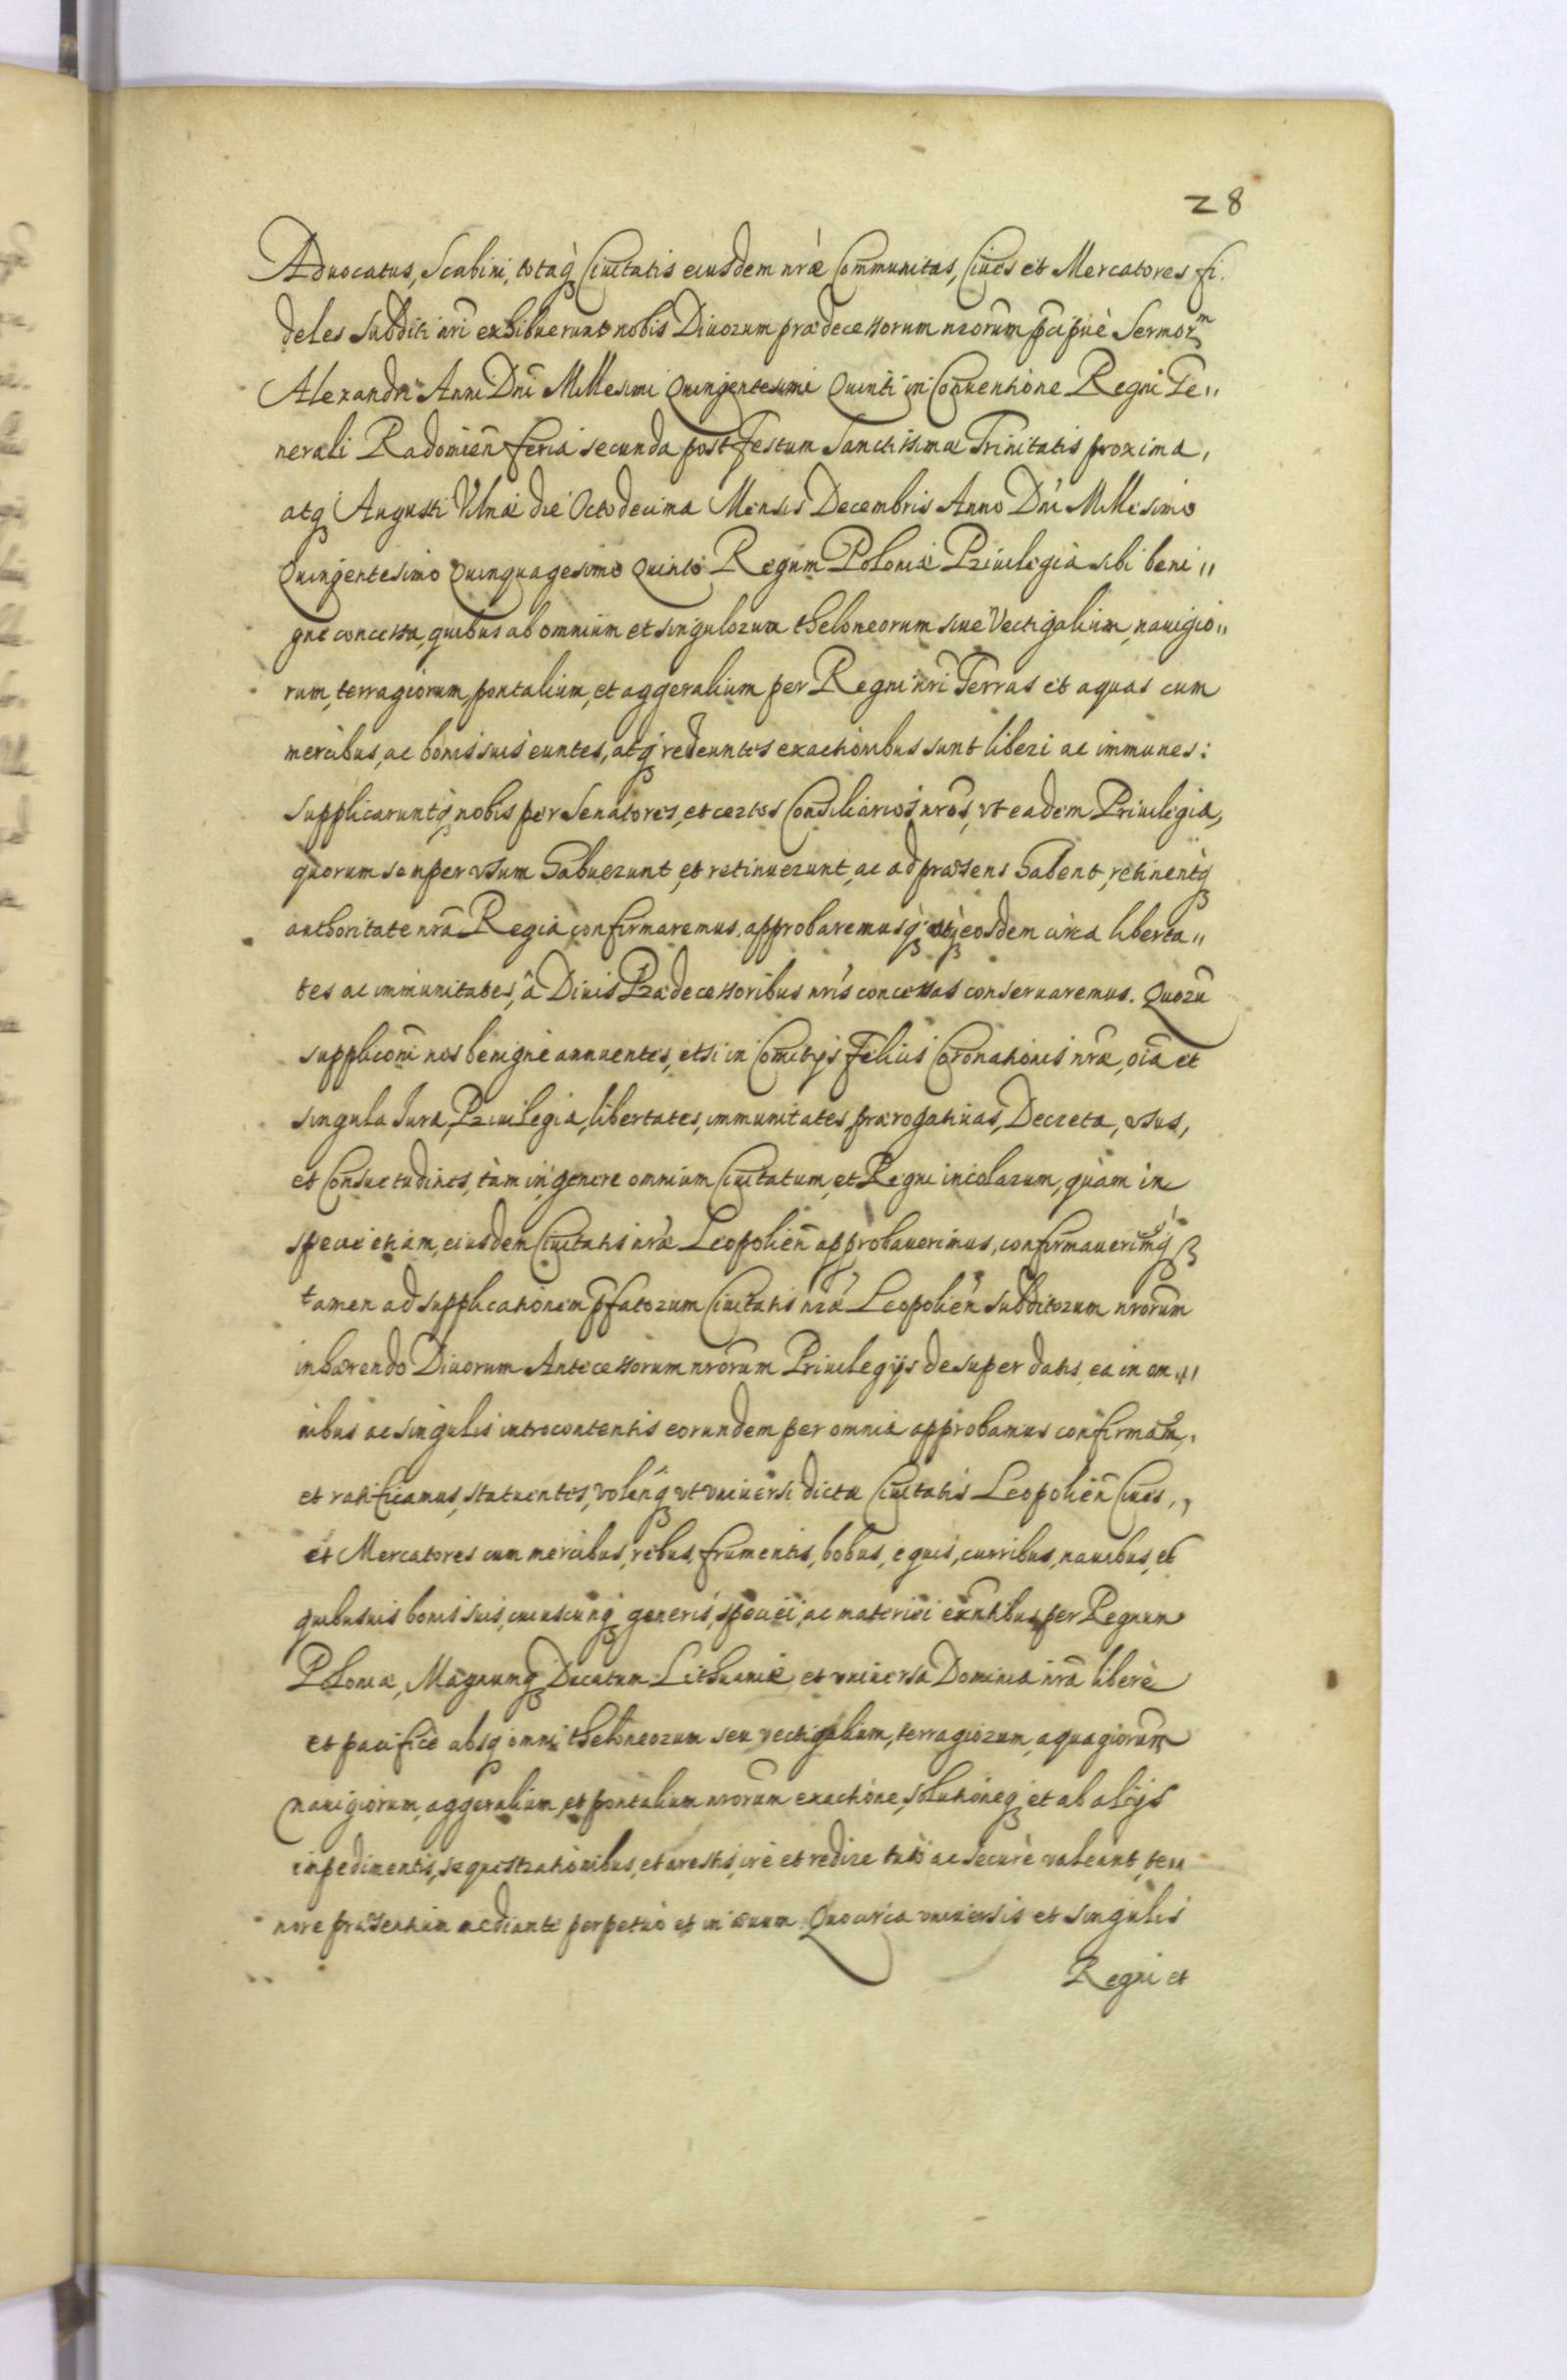 28
Aduocatus, Scabini, totaq́ꝫ Ciuitatis eiusdem nrǽ Communitas, Ciues et Mercatores fi.
deles Subditi nr̃i exhibuerunt nobis Diuorum prædecessorum nrorũm p̃cipuè Sermorꝫᵐ
Alexandri Anni Dnĩ Millesimi Quingentesimi Quinti in Conuentione Regni Ge„
nerali Radomieñ feria secunda post Festum Sanctissimæ Trinitatis proxima,
atqꝫ Augusti Vilnæ die Octodecima Mensis Decembris Anno Dnĩ Millesimo
Quingentesimo Quinquagesimo Quinto Regum Poloniæ Priuilegia sibi beni„
gnè concessa, quibus ab omnium et singulorum theloneorum siue Vectigalium, nauigio„
rum, terragiorum, pontalium, et aggeralium per Regni nr̃i Terras et aquas cum
mercibus, ac bonis suis euntes, atqꝫ redeuntes exactionibus sunt liberi ac immunes:
supplicaruntq́ꝫ nobis per Senatores, et certos Consiliarios nrõs, vt eadem Priuilegia,
quorum semper vsum habuerunt, et retinuerunt, ac ad præsens habent, retinentq́ꝫ
authoritate nrã Regia confirmaremus, approbaremusq́ꝫ atq́ꝫ eosdem circa liberta„
tes ac immunitates, â Diuis Prædecessoribus nrís concessas conseruaremus. Quorũ
suppliconĩ nos benignè annuentes, etsi in Comitijs felicis Coronationis nrǽ, oĩa et
singula Iura, Priuilegia, libertates, immunitates, prærogatiuas, Decreta, vsus,
et Consuetudines, tàm in genere omnium Ciuitatum, et Regni incolarum, quàm in
specie etiam, eiusdem Ciuitatis nrǽ Leopolieñ approbauerimus, confirmauerimq́ꝫ
tamen ad supplicationem p̃fatorum Ciuitatis nrǽ Leopolieñ Subditorum nrorũm
inhærendo Diuorum Antecessorum nrorũm Priuilegijs desuper datis, ea in om„
nibus ac singulis introcontentis eorundem per omnia approbamus confirmam̃,
et ratificamus, statuentes, volenq́ꝫ vt vniuersi dictæ Ciuitatis Leopolieñ Ciues,
et Mercatores cum mercibus, rebus, frumentis, bobus, equis, curribus, nauibus, et
quibusuis bonis suis, cuiuscunqꝫ generis, speciei, ac materiei exñtibus per Regnum
Poloniæ, Magnumqꝫ Ducatum Lithuaniæ, et vniuersa Dominia nrã liberè
et pacificè absqꝫ omni theloneorum seu vectigalium, terragiorum, aquagiorum
nauigiorum, aggeralium, et pontalium nrorũm exactione, solutioneqꝫ et ab alijs
impedimentis, sequestrationibus, et arestis, ire et redire tutò ac securè valeant, te„
nore præsentium mediante perpetuò et in æuum. Quocirca vniuersis et singulis
Regni et